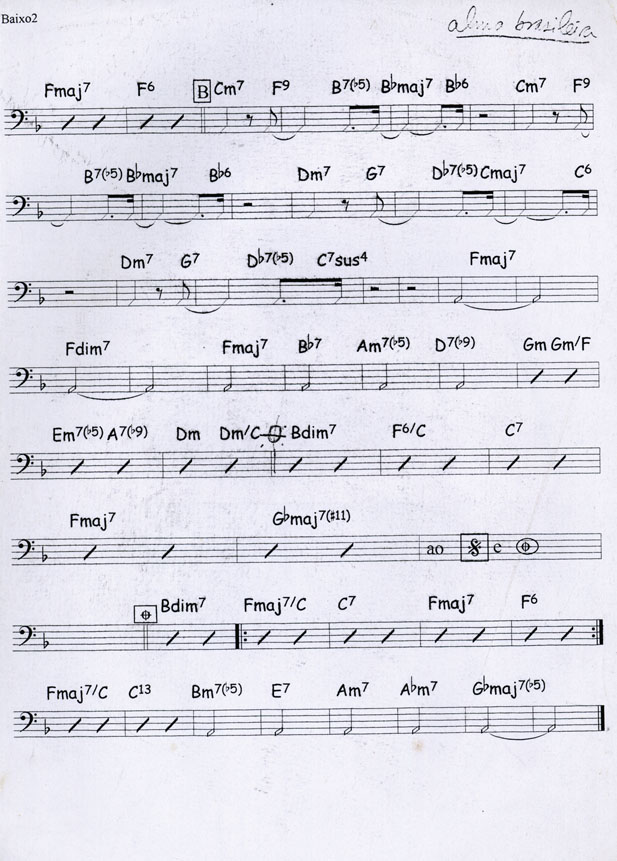 Baixo2
alma brasileira
Fmaj7 F6 B Cm7 F9 B7(♭5) B♭maj7 B♭6 Cm7 F9
B7(♭5) B♭maj7 B♭6 Dm7 G7 D♭7(♭5) Cmaj7 C6
Dm7 G7 D♭7(♭5) C7sus4 Fmaj7
Fdim7 Fmaj7 B♭7 Am7(♭5) D7(♭9) Gm Gm/F
Em7(♭5) A7(♭9) Dm Dm/C Bdim7 F6/C C7
Fmaj7 G♭maj7(♯11) ao e
Bdim7 Fmaj7/C C7 Fmaj7 F6
Fmaj7/C C13 Bm7(♭5) E7 Am7 A♭m7 G♭maj7(♭5)